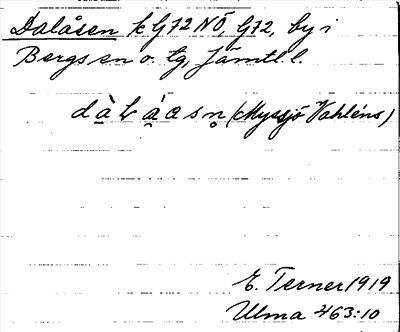 Dalåsen k G72 NÖ, G72, by i
Bergs sn o. tg, Jämtl. l.
(Myssjö Vahléns)
E. Terner 1919
Ulma 463:10